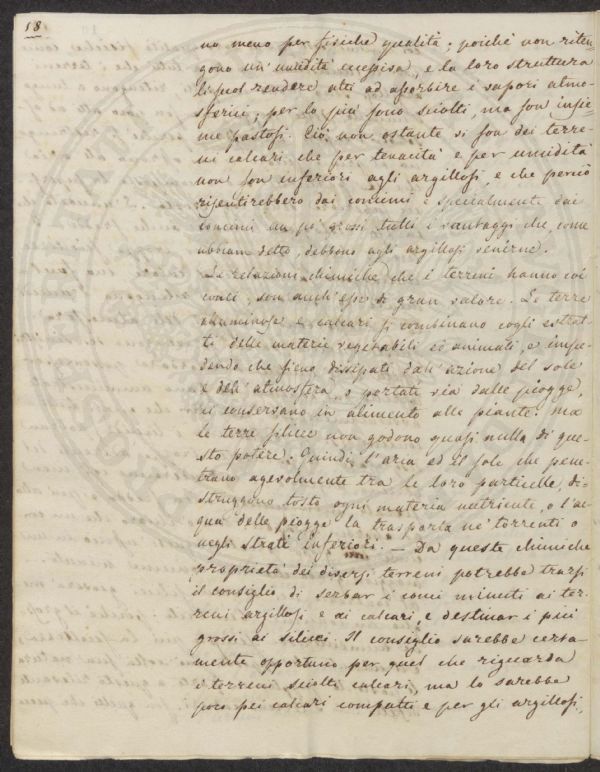 18.
no meno per fisiche qualità; poichè non riten-
gono un' umidità eccessiva, e la loro struttura
li puol rendere atti ad assorbire i vapori atmo-
sferici; per lo più sono sciolti, ma son insie-
me pastosi. Ciò non ostante vi son dei terre-
ni calcari che per tenacità e per umidità
non son inferiori agli argillosi, e che perciò
risentirebbero dai concimi e specialmente dai
concimi un po' grossi tutti i vantaggi che, come
abbiam detto, debbono agli argillosi venirne.
Le relazioni chimiche che i terreni hanno coi
conci, son anch' esse di gran valore. Le terre
alluminose e calcari si combinano cogli estrat-
ti delle materie vegetabili ed animali, e impe-
dendo che sieno dissipati dall' azione del sole
e dell' atmosfera, o portati via dalle piogge,
li conservano in alimento alle piante. Ma
le terre silicee non godono quasi nulla di que-
sto potere. Quindi l'aria ed il sole che pene-
trano agevolmente tra le loro particelle, di-
struggono tosto ogni materia nutriente, o l'ac-
qua delle piogge la trasporta ne' torrenti o
negli strati inferiori. — Da queste chimiche
proprietà dei diversi terreni potrebbe trarsi
il consiglio di serbar i conci minuti ai ter-
reni argillosi e ai calcari, e destinar i più
grossi ai silicei. Il consiglio sarebbe certa-
mente opportuno per quel che riguarda
i terreni sciolti calcari, ma lo sarebbe
poco pei calcari compatti e per gli argillosi,